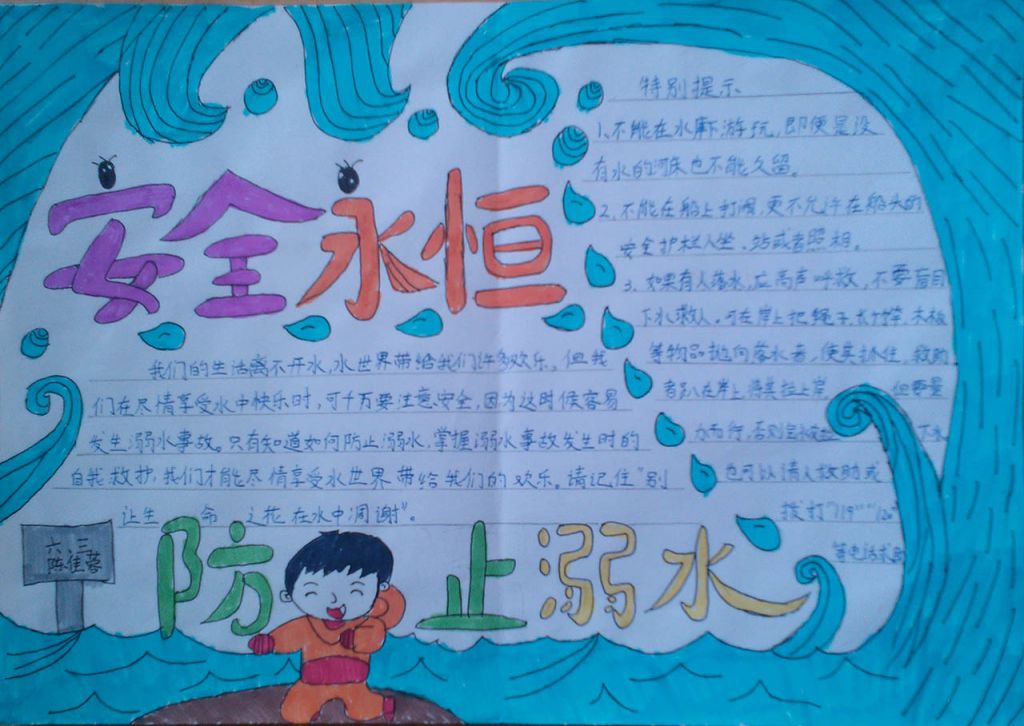 安全永恒
我们的生活离不开水,水世界带给我们许多欢乐。但我
们在尽情享受水中快乐时,可千万要注意安全,因为这时候容易
发生溺水事故。只有知道如何防止溺水,掌握溺水事故发生时的
自我救护,我们才能尽情享受水世界带给我们的欢乐。请记住"别
让生命之花在水中凋谢"。
特别提示
1、不能在水库下游玩,即便是没
有水的河床也不能久留。
2、不能在船上打闹,更不允许在船头的
安全护栏人坐、站或者照相。
3、如果有人落水,应高声呼救,不要盲目
下水救人。可在岸上把绳子、长竹竿、木板
等物品抛向落水者,使其抓住,救助
者趴在岸上,将其拉上岸, 但要量
力而行,否则会被 下水
也可以请人救助或
拨打"119""120"
等电话求助
六、三
陈佳蓉
防止溺水